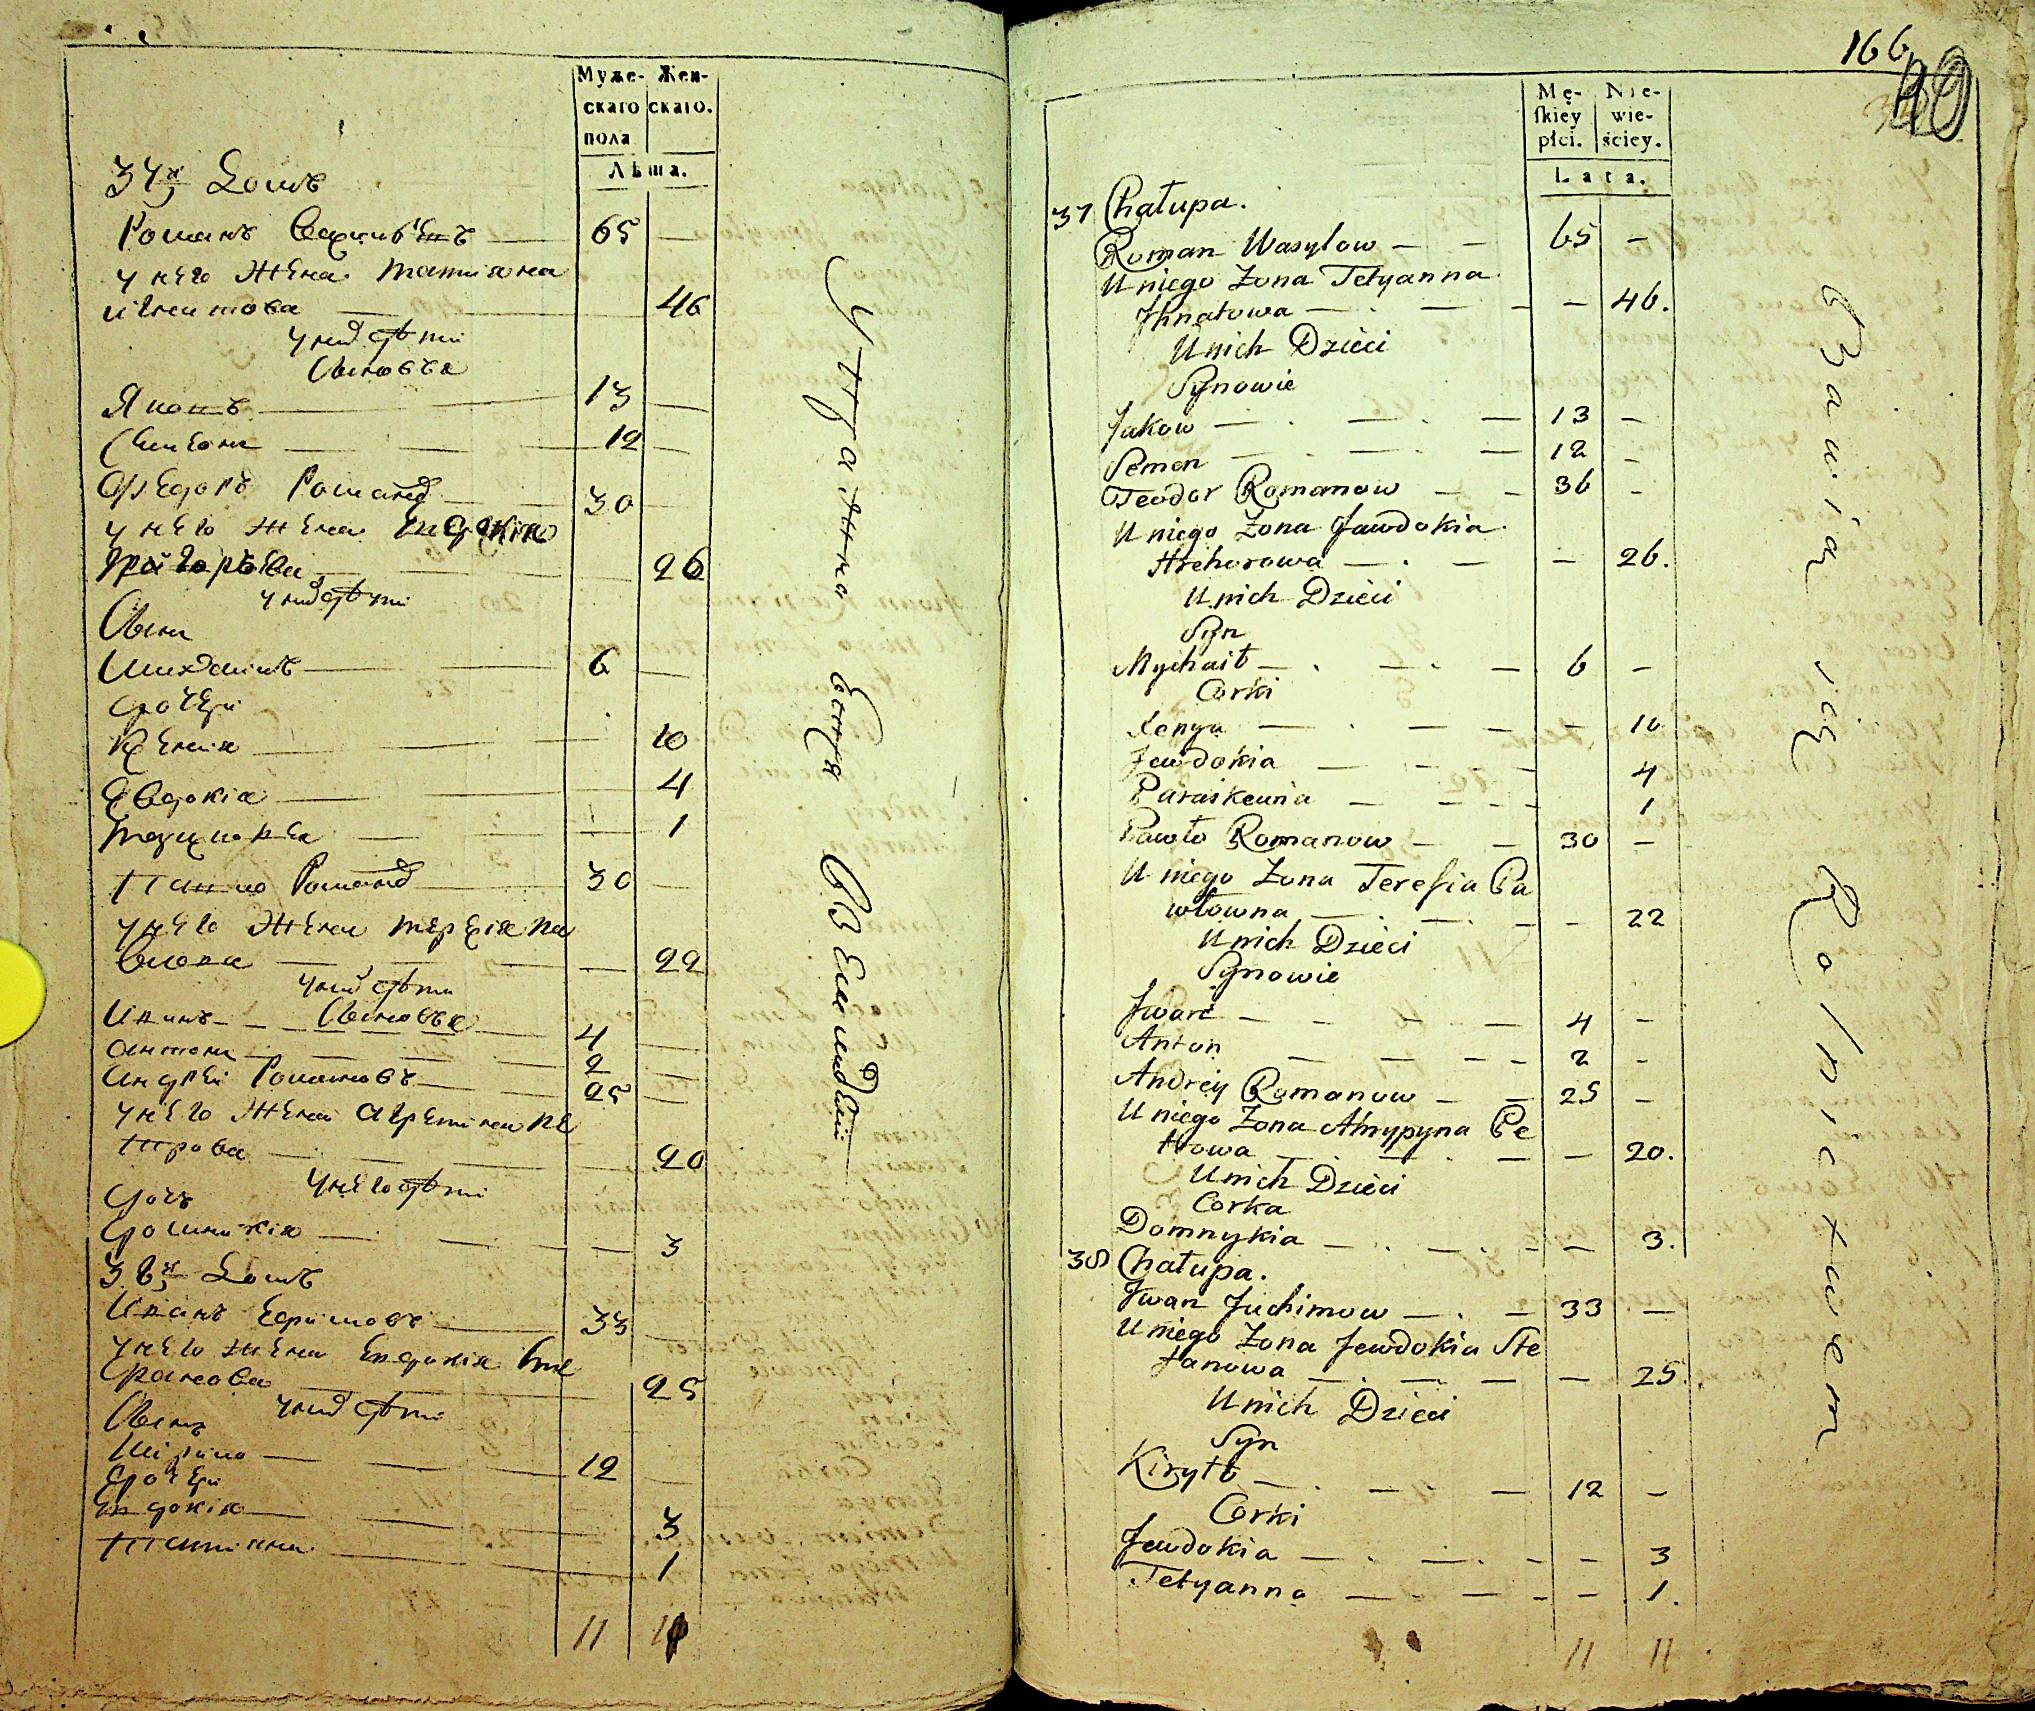 Муже-
скаго
пола
Жен-
скаго.
Лѣта.
37й Домъ
Романъ Василъевъ — 65 —
у него жена Татіяна
Игнатова — 46
у них дѣти
Сыновья
Яковъ — 13 —
Симеон — 12 —
Федоръ Романов — 30 —
у него жена Евдокія
Григорьева — 26
у них дѣти
Сын
Михайлъ — 6 —
дочери
Ксенія — 10
Евдокіа — 4
— 1
Павло Романов — 30 —
у него жена Терезія Па
влова — 22
у них дѣти
Иванъ — Сыновья — 4 —
Антон — 2 —
Андрей Романовъ — 25 —
у него жена Агрепина Пе
трова — 20
у него дѣти
дочь
Домникія — 3
38й Домъ
Иванъ Ефимовъ — 33 —
у него жена Евдокія Сте
фанова — 25
у них дѣти
Сынъ
Кірило — 12 —
дочери
Евдокія — 3
Татіяна — 1
11 11
166
Mę-
ſkiey
płci.
Nie-
wie-
ściey.
Lata.
37 Chałupa.
Roman Wasylow — 65 —
U niego Żona Tetyanna
Jhnatowa — 46.
U nich Dzieci
Synowie
Jakow — 13 —
Semen — 12 —
Teodor Romanow — 36 —
U niego Żona Jawdokia
Hrehorowa — 26.
U nich Dzieci
Syn
Mychaił — 6 —
Corki
Xenya — 10
Jewdokia — 4
Paraskewia — 1
Pawło Romanow — 30 —
U niego Żona Tereſia Pa
włowna — 22
U nich Dzieci
Synowie
Jwan — 4 —
Anton — 2 —
Andrey Romanow — 25 —
U niego Żona Ahrypyna Pe
trowa — 20.
U nich Dzieci
Corka
Domnykia — 3.
38 Chałupa.
Jwan Juchimow — 33 —
U niego Żona Jewdokia Ste
fanowa — 25.
U nich Dzieci
Syn
Kiryło — 12 —
Corki
Jewdokia — 3
Tetyanna — 1.
11 11
Bawią się Rolnictwem